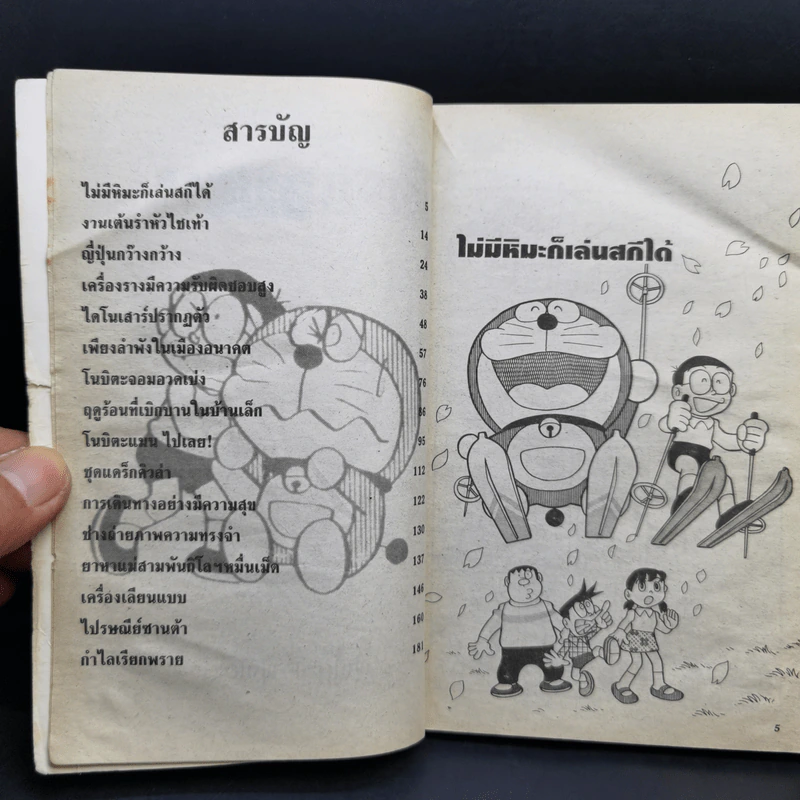 สารบัญ
ไม่มีหิมะก็เล่นสกีได้ 5
งานเต้นรำหัวไชเท้า 14
ญี่ปุ่นกว๊างกว้าง 24
เครื่องรางมีความรับผิดชอบสูง 38
ไดโนเสาร์ปรากฏตัว 48
เพียงลำพังในเมืองอนาคต 57
โนบิตะจอมอวดเบ่ง 76
ฤดูร้อนที่เบิกบานในบ้านเล็ก 86
โนบิตะแมน ไปเลย! 95
ชุดแดร็กคิวล่า 112
การเดินทางอย่างมีความสุข 122
ปางถ่ายภาพความทรงจำ 130
ยาหาแม่สามพันกิโลฯหมื่นเม็ด 137
เครื่องเลียนแบบ 146
ไปรษณีย์ซานต้า 160
กำไลเรียกพราย 181
ไม่มีหิมะก็เล่นสกีได้
5